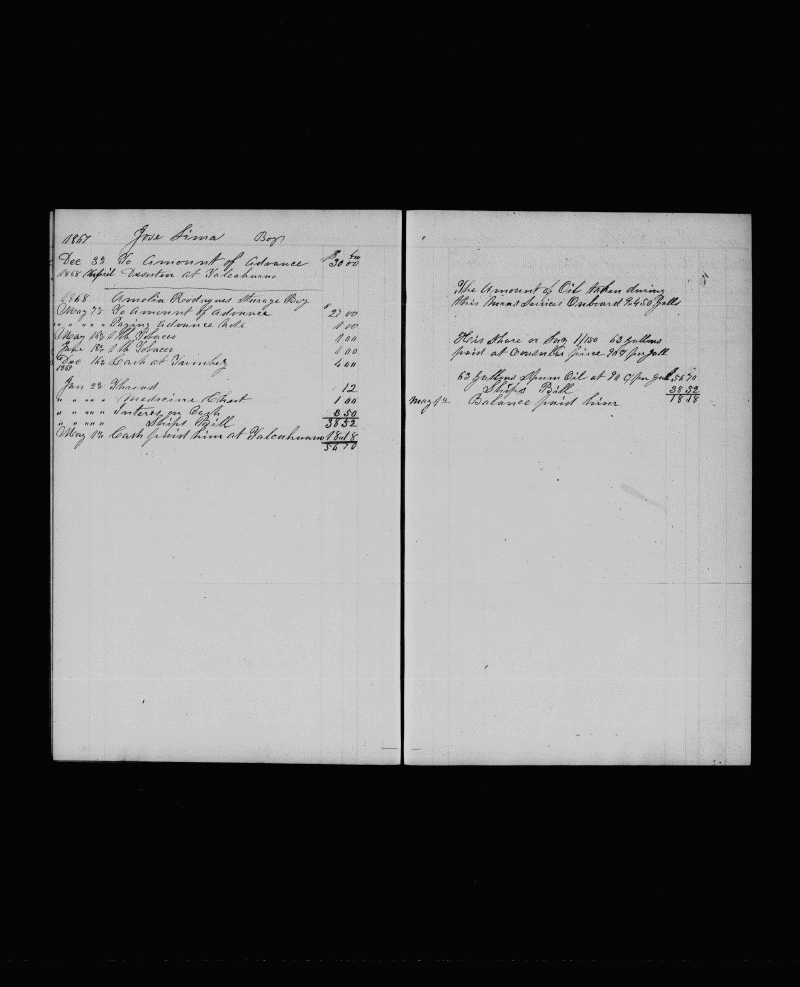 1867 Jose Lima Boy
Dec 3d To Amount of Advance 30 00
1868 April Desertion at Talcahuano
1868 Amelio Rodrigues Steerage Boy
May 7th To Amount of Advance 27 00
" " " " Paying Advance Note 1 00
May 16th 1 lb Tobacco 1 00
June 18th 1 lb Tobacco 1 00
Dec 16th Cash at 4 00
1869
Jan 22d Thread 12
" " " " Medicine Chest 1 00
" " " " Interest on Cash 3 50
" " " " Ships Bill 38 52
May 1st Cash paid him at Talcahuano 18 18
56 70
The Amount of Oil taken during
this Mans Services Onboard 9450 Galls
His Share or Lay 1/150 63 Gallons
paid at Consular price 90 ¢ per gall
63 Gallons Sperm Oil at 90 ¢ per Gall $56 70
Ships Bill 38 52
May 1st Balance paid him 18 18